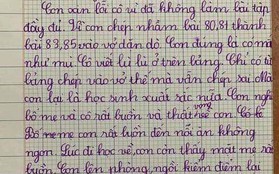 Con xin lỗi cô vì đã không làm bài tập
đầy đủ. Vì con chép nhầm bài 80,81 thành
bài 83,85 vào vở dặn dò. Con đúng là có mắt
như mù. Cô viết lù lù ở trên bảng. Chỉ có từ
bảng chép vào vở thế mà vẫn chép sai. Mà
con lại là học sinh xuất sắc nữa. Con nghĩ
bố mẹ và cô rất buồn và thất vọng về con. Cô
Bố mẹ con rất buồn đến nỗi ăn không
ngon. Lúc đi học về, con còn thấy mắt mẹ rất
buồn. Con lên phòng, ngồi kiểm điểm lại